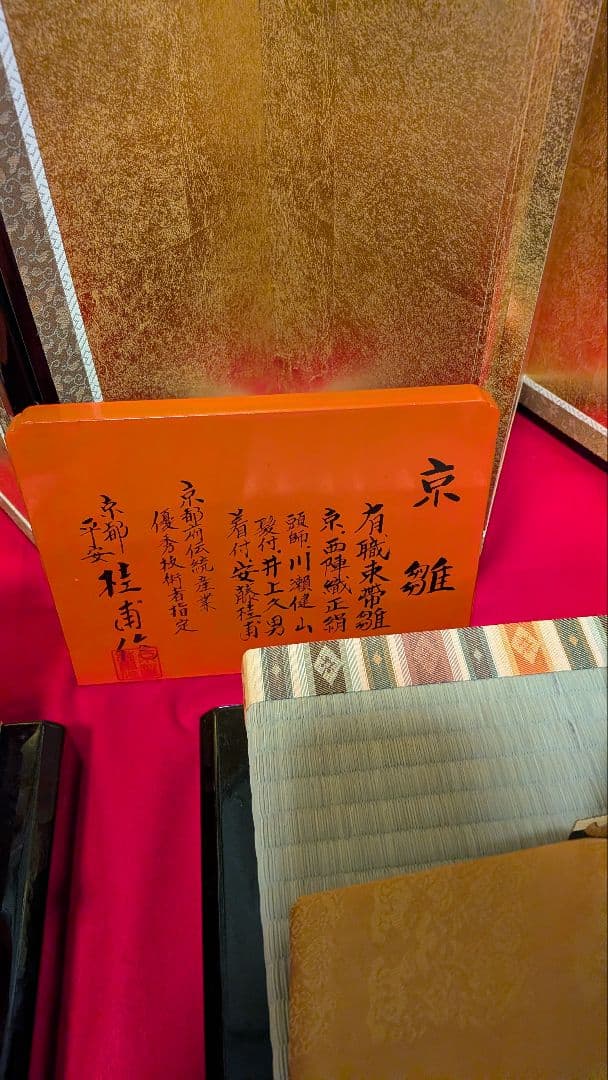 京雛
有職束帯雛
京、西陣織正絹
頭師、川瀬健山
髪付、井上久男
着付、安藤桂甫
京都府伝統産業
優秀技術者指定
京都
平安 桂甫作